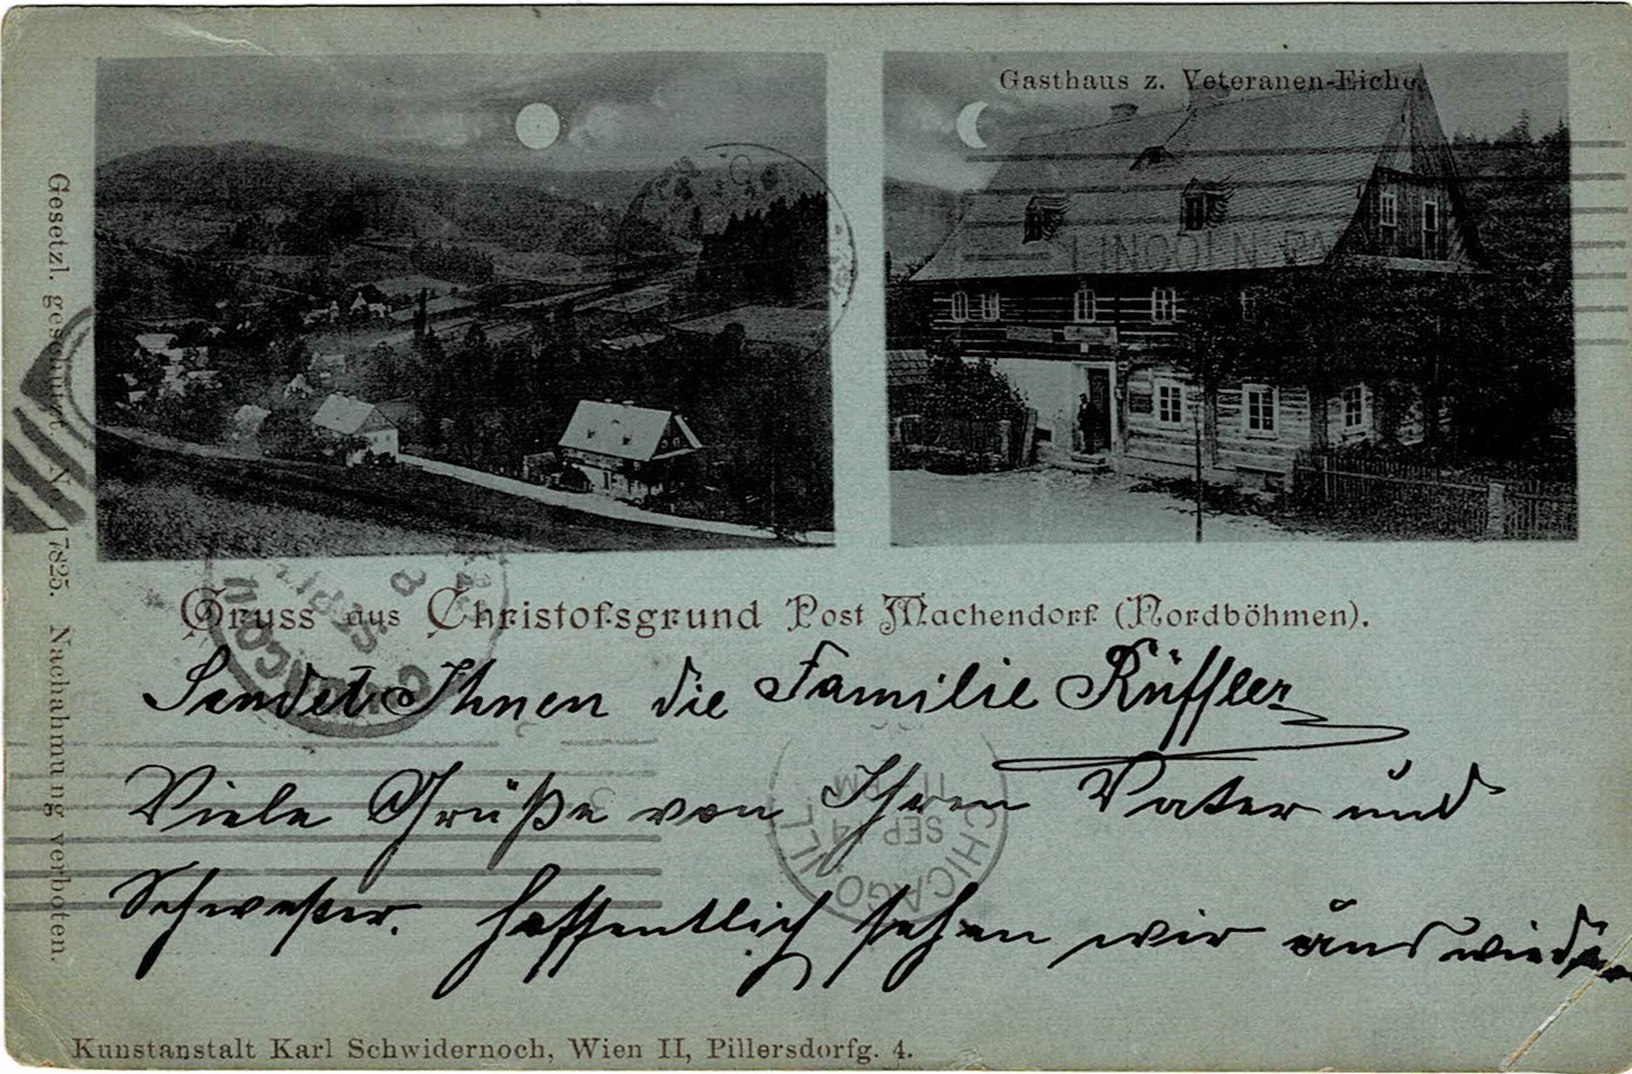 Gasthaus z. Veteranen-Eiche.
LINCOLN PA
Gesetzl. geschützt N 17825. Nachahmung verboten.
Gruss aus Christofsgrund Post Machendorf (Nordböhmen).
Sendet Ihnen die Familie Rüffler
Viele Grüße von Ihren Vater und
Schwester. hoffentlich sehen wir uns wieder
CHICAGO, ILL.
SEP 4
11 PM
CHICAGO, ILL
Kunstanstalt Karl Schwidernoch, Wien II, Pillersdorfg. 4.